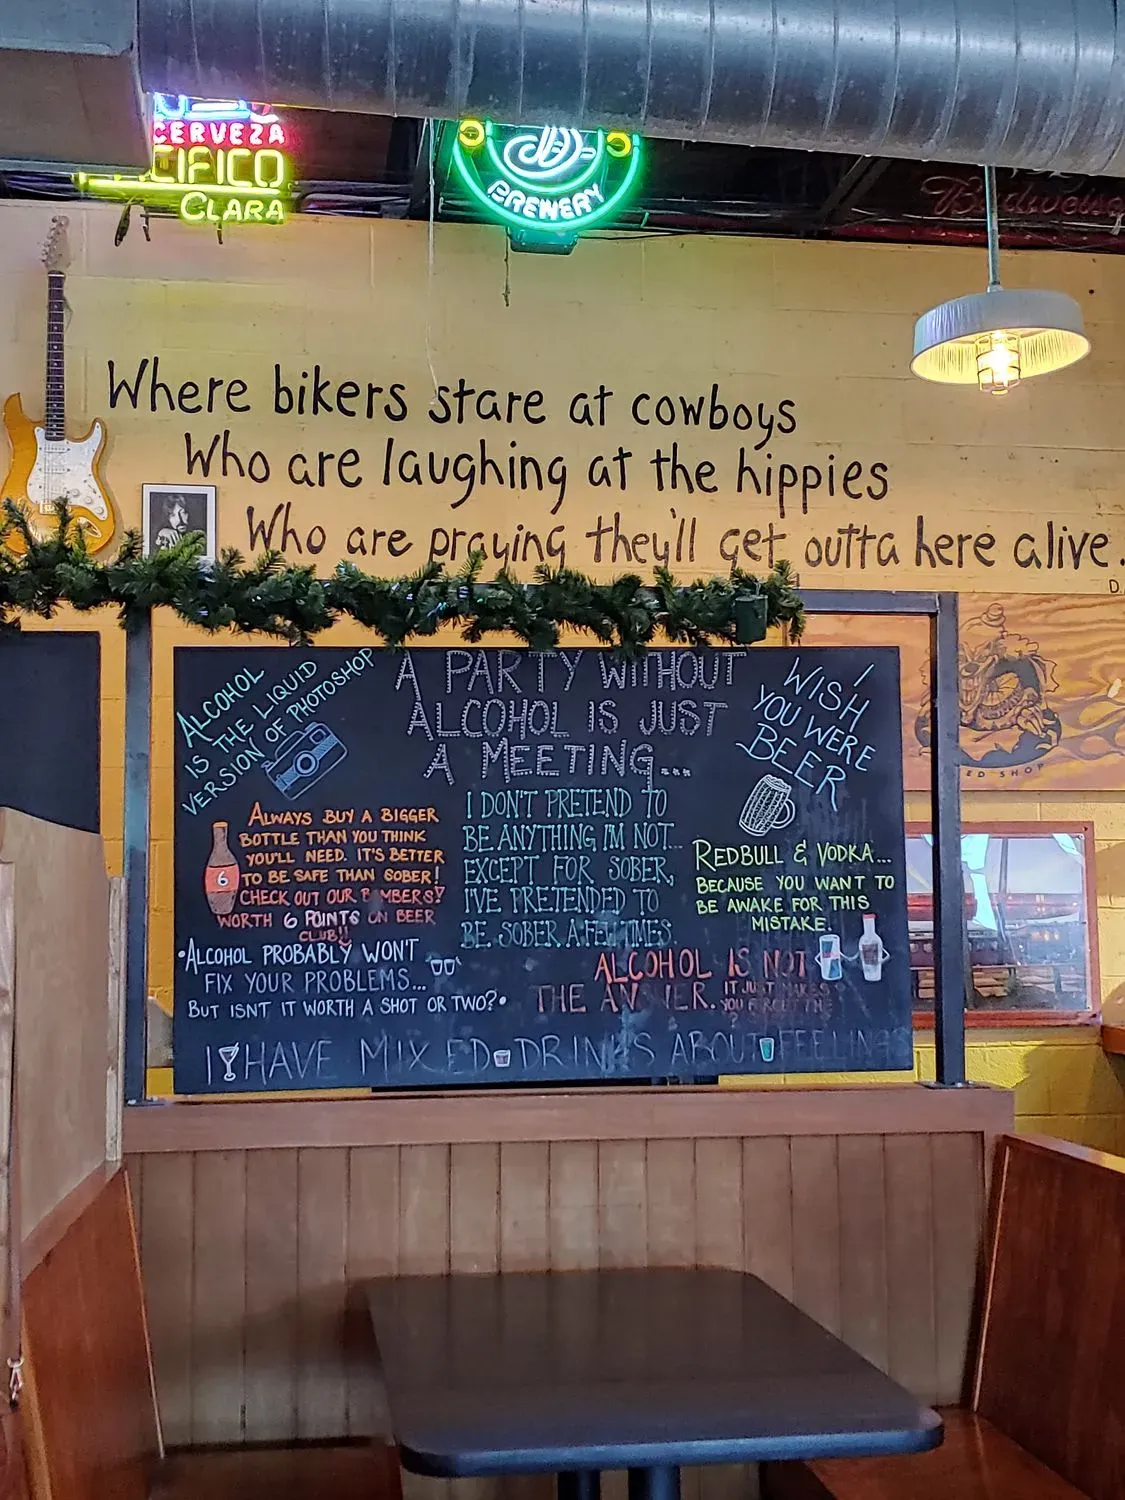 CERVEZA
CIFICO
CLARA
BREWERY
Budweiser
Where bikers stare at cowboys
Who are laughing at the hippies
Who are praying they'll get outta here alive.
D.
ED SHOP
ALCOHOL
IS THE LIQUID
VERSION OF PHOTOSHOP
A PARTY WITHOUT
ALCOHOL IS JUST
A MEETING...
I
WISH
YOU WERE
BEER
ALWAYS BUY A BIGGER
BOTTLE THAN YOU THINK
YOU'LL NEED. IT'S BETTER
TO BE SAFE THAN SOBER!
CHECK OUT OUR B MBERS!
WORTH 6 POINTS ON BEER
CLUB!!
6
I DON'T PRETEND TO
BE ANYTHING I'M NOT...
EXCEPT FOR SOBER,
I'VE PRETENDED TO
BE SOBER A FEW TIMES
REDBULL & VODKA...
BECAUSE YOU WANT TO
BE AWAKE FOR THIS
MISTAKE.
•ALCOHOL PROBABLY WON'T
FIX YOUR PROBLEMS...
BUT ISN'T IT WORTH A SHOT OR TWO?•
ALCOHOL IS NOT
THE AN WER.
IT JUST MAKES
YOU FORGET THE
?
I HAVE MIXED DRINKS ABOUT FEELINGS